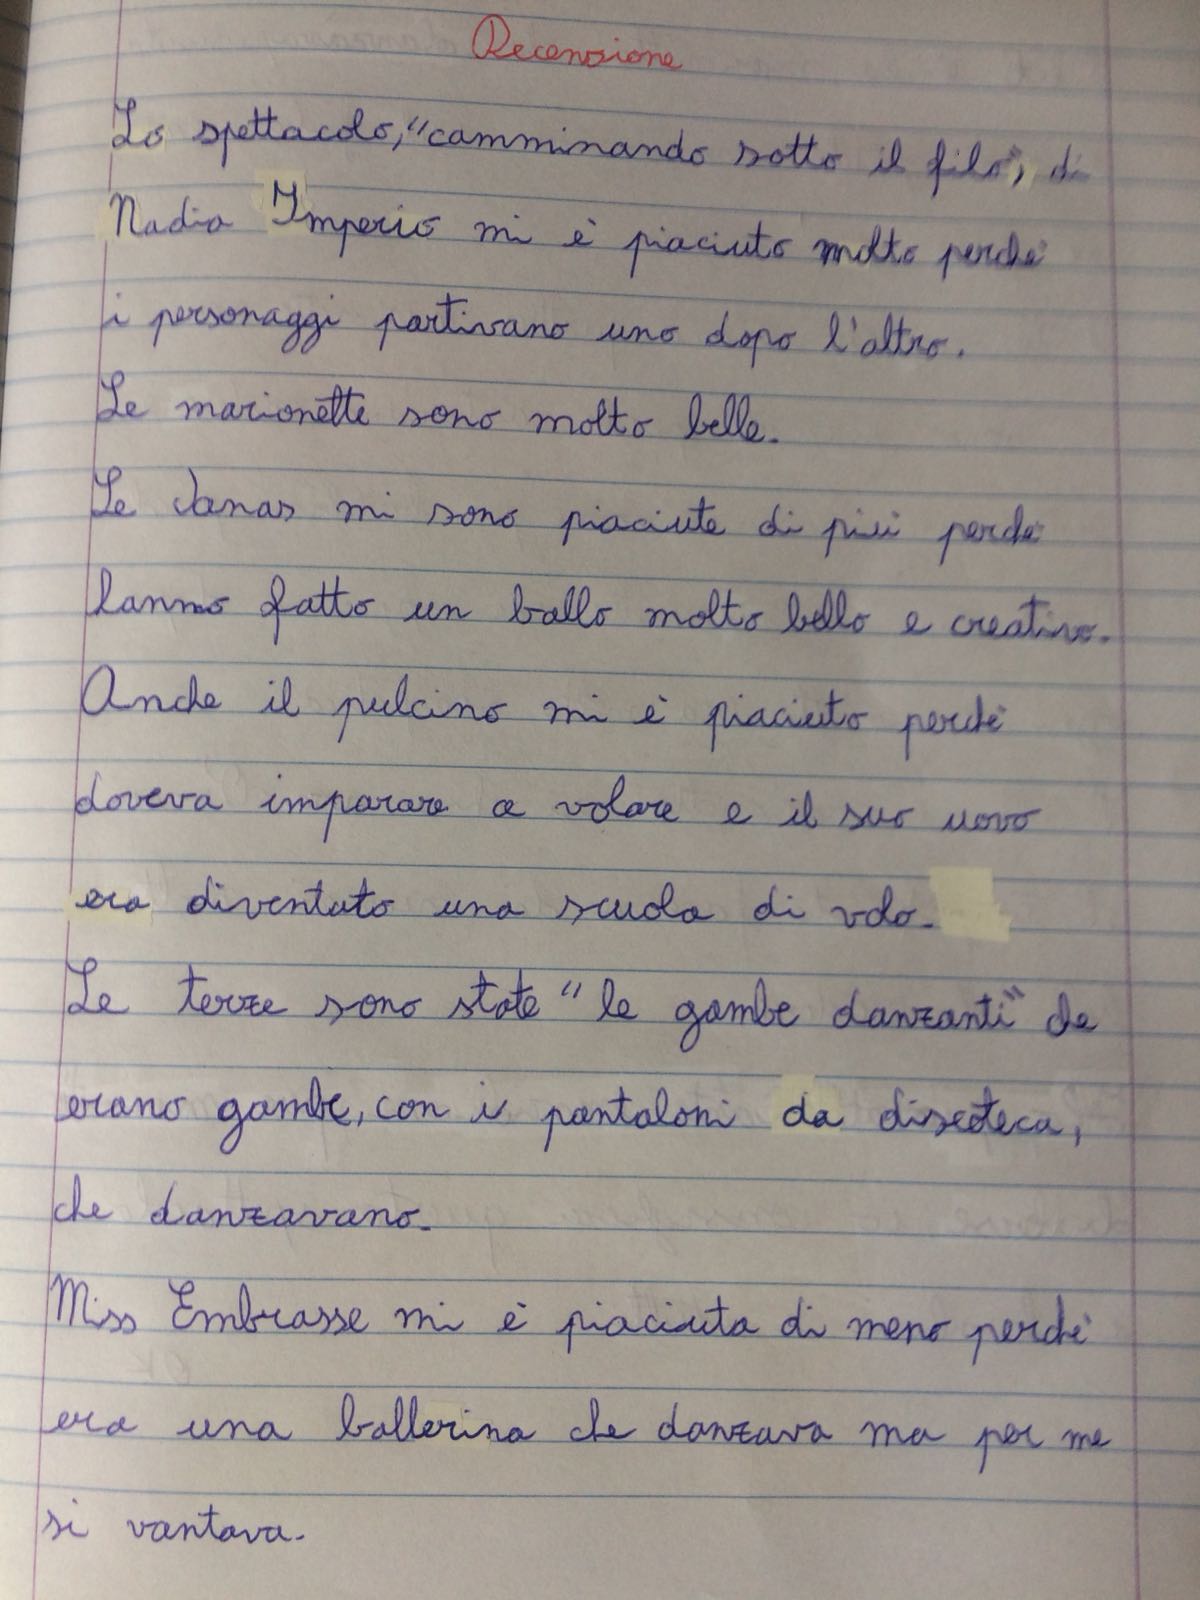 Recensione
Lo spettacolo, "camminando sotto il filo", di
Nadia Imperio mi è piaciuto molto perché
i personaggi partivano uno dopo l'altro.
Le marionette sono molto belle.
Le Janas mi sono piaciute di più perché
hanno fatto un ballo molto bello e creativo.
Anche il pulcino mi è piaciuto perchè
doveva imparare a volare e il suo uovo
era diventato una scuola di volo.
Le terze sono state "le gambe danzanti" che
erano gambe, con i pantaloni da discoteca,
che danzavano.
Miss Embrasse mi è piaciuta di meno perchè
era una ballerina che danzava ma per me
si vantava.